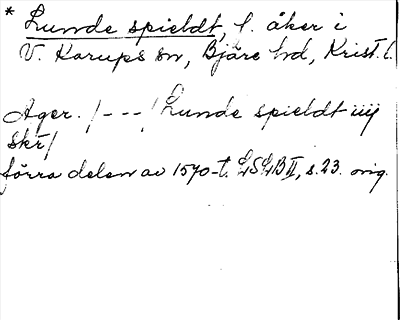 * Lunde spieldt, f. åker i
V. Karups sn, Bjäre hd, Krist. l.
Ager. /---/ Lunde spieldt iiij
skr/
förra delen av 1570-t. LSLB II, s. 23. orig.